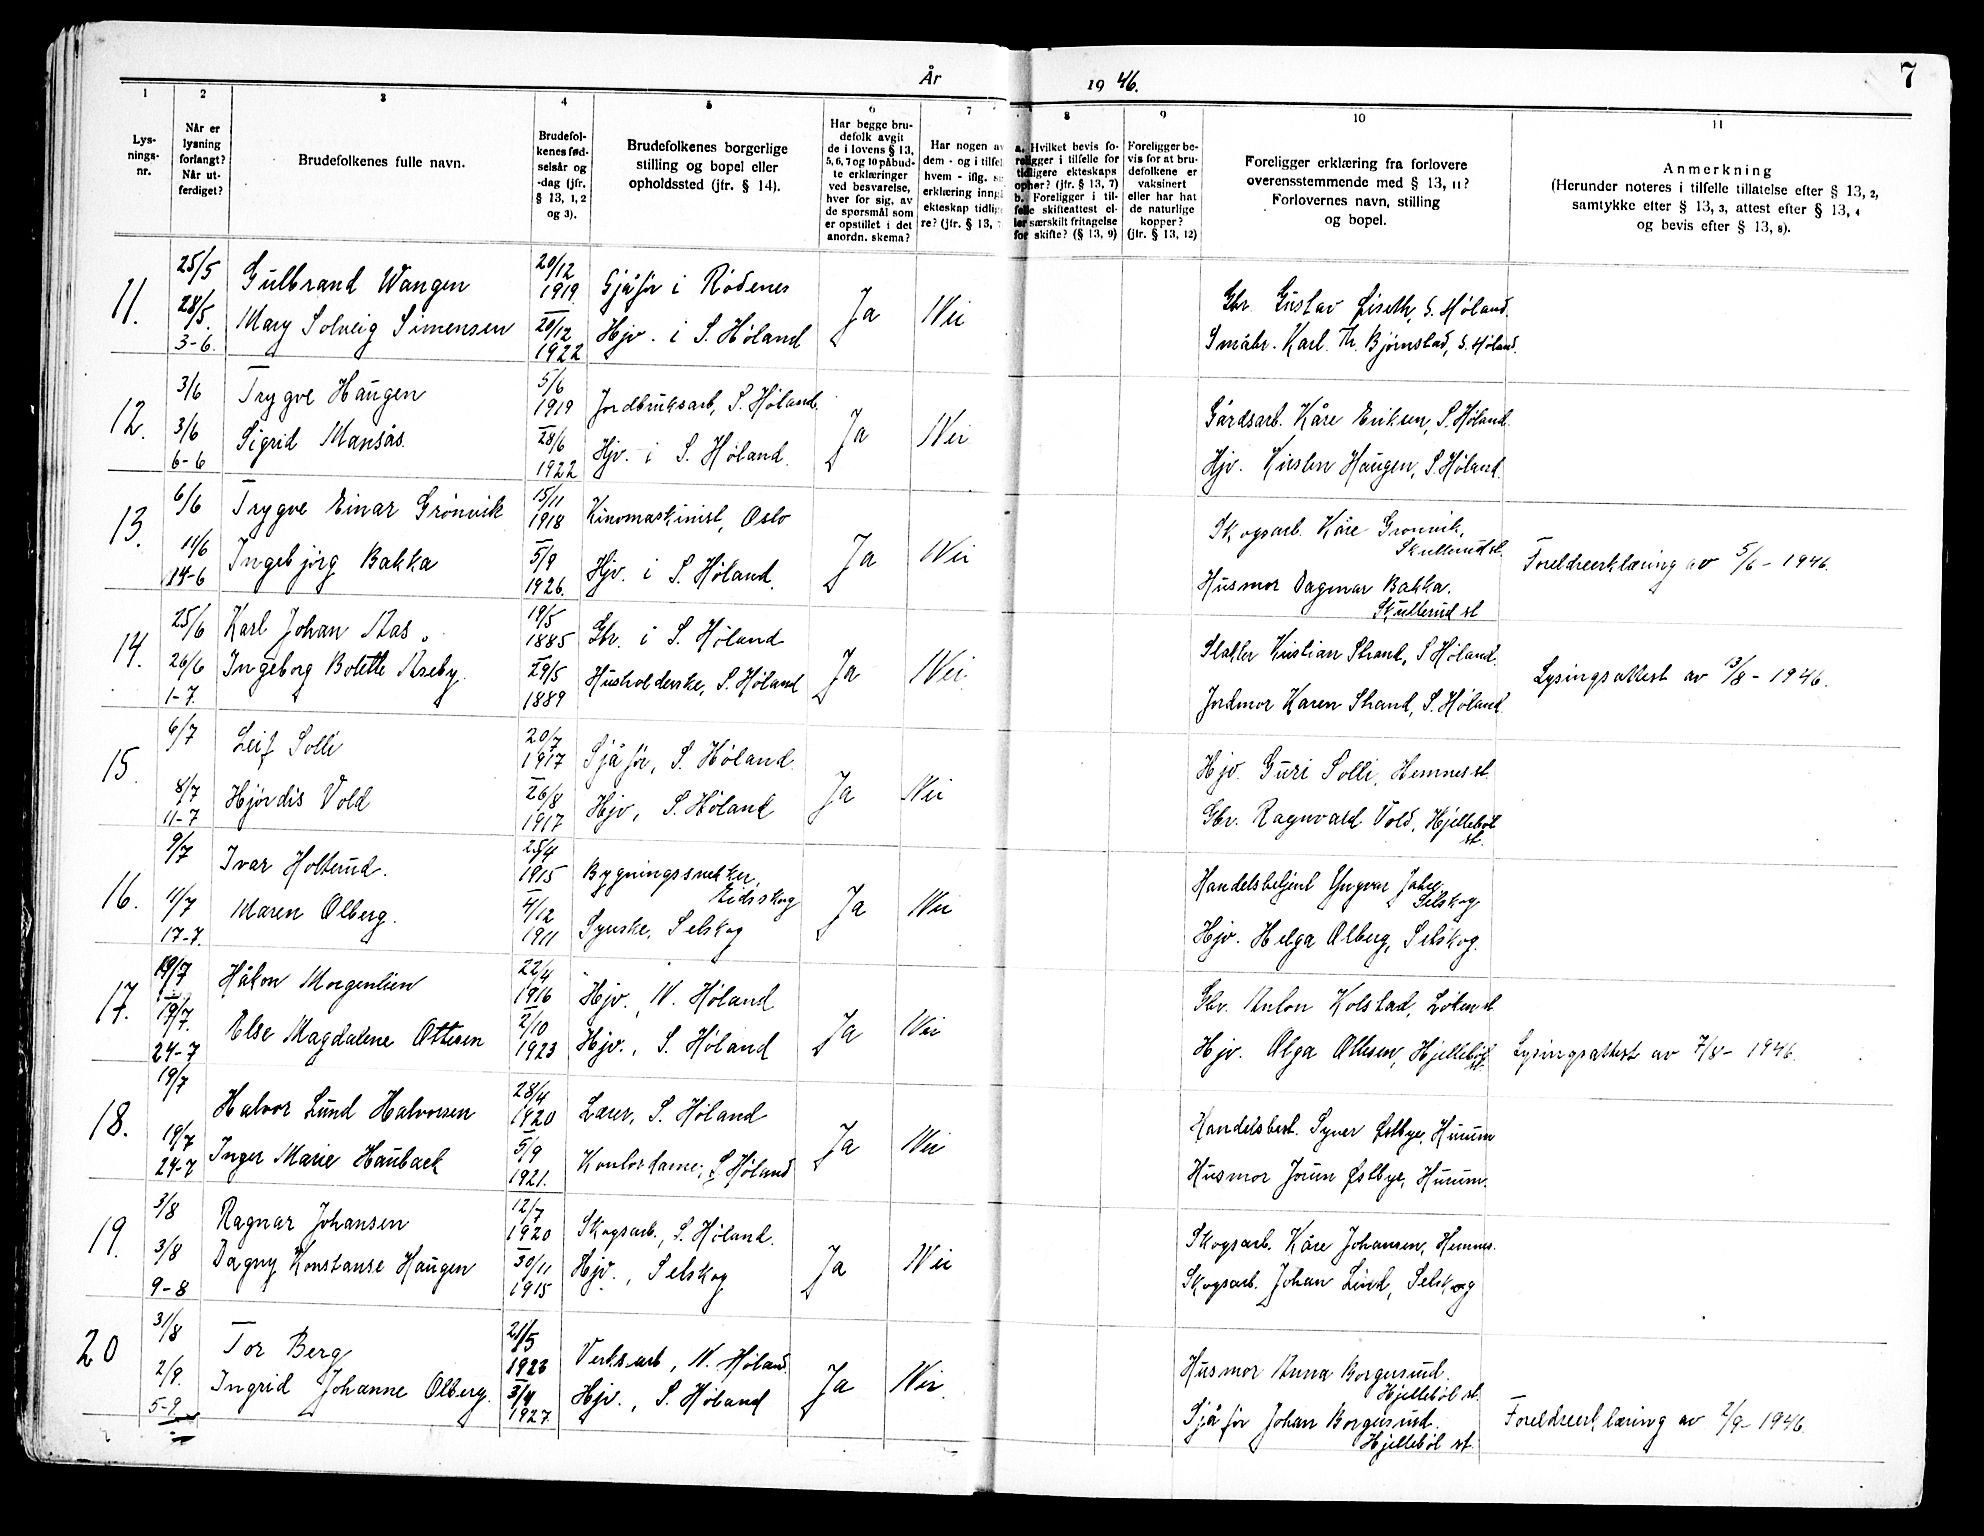 År 1946.
7
1
2
3
4
5
6
7
8
9
10
11
Lys-
nings-
nr.
Når er
lysning
forlangt?
Når ut-
ferdiget?
Brudefolkenes fulle navn.
Brudefol-
kenes fød-
selsår og
-dag (jfr.
§ 13, 1, 2
og 3).
Brudefolkenes borgerlige
stilling og bopel eller
opholdssted (jfr. § 14).
Har begge bru-
defolk avgit
de i lovens § 13,
5, 6, 7 og 10 påbud-
te erklæringer
ved besvarelse,
hver for sig, av
de spørsmål som
er opstillet i det
anordn. skema?
Har nogen av
dem - og i tilfel
hvem - iflg.
erklæring inng
ekteskap tidlig
re? (jfr. § 13,
a. Hvilket bevis fo-
religger i tilfelle for
tidligere ekteskaps
ophør? (jfr. § 13, 7)
b. Foreligger i til-
felle skifteattest el-
ler særskilt fritagelse
for skifte? (§ 13, 9)
Foreligger be-
vis for at bru-
defolkene er
vaksinert
eller har hat
de naturlige
kopper?
(jfr. § 13, 12)
Foreligger erklæring fra forlovere
overensstemmende med § 13, 11?
Forlovernes navn, stilling
og bopel.
Anmerkning
(Herunder noteres i tilfelle tillatelse efter § 13, 2,
samtykke efter § 13, 3, attest efter § 13, 4
og bevis efter § 13, 8).
11.
25/5
28/5.
3-6.
Gulbrand Wangen
Mary Solveig Simensen
20/12
1919
20/12
1922
Sjåfør i Rødenes
Hjv. i S. Høland
Ja
Nei
Gbr. Gustav Liseth, S. Høland.
Småbr. Karl. Th. Bjørnstad, S. Høland.
12.
3/6
3/6
6-6
Trygve Haugen
Sigrid Mansås.
5/6
1919
28/6
1922
Jordbruksarb, S. Høland.
Hjv. i S. Høland.
Ja
Nei
Gårdsarb. Kåre Eriksen, S. Høland.
Hjv. Kirsten Haugen, S. Høland.
13.
6/6
11/6
14-6
Trygve Einar Grønvik
Ingebjørg Bakka
15/11
1918
5/9
1926.
Kinomaskinist, Oslo
Hjv. i S. Høland.
Ja
Nei
Skogsarb. Kåre Grønvik,
Skullerud st.
Husmor Dagmar Bakka.
Skullerud st
Foreldreerklæring av 5/6 - 1946.
14.
25/6
26/6
1-7.
Karl Johan Aas.
Ingeborg Bolette Aseby.
19/5
1885
29/5
1889
Gbr. i S. Høland
Husholderske, S. Høland
Ja
Nei.
Slakter Kristian Strand, S. Høland.
Jordmor Karen Strand, S. Høland.
Lysingsattest av 13/8 - 1946.
15.
6/7
8/7
11-7
Leif Solli
Hjørdis Vold
20/7
1917
26/8
1917
Sjåfør, S. Høland.
Hjv, S. Høland
Ja
Nei
Hjv. Guri Solli, Hemnes st.
Gbr. Ragnvald Vold, Hjellebøl
st.
16.
9/7
11/7
17-7.
Ivar Holterud.
Maren Olberg.
25/4
1915
4/12
1911
Bygningssnekker,
Eidsskog
Syerske, Setskog
Ja
Nei
Handelsbetjent Yngvar
Setskog
Hjv. Helga Olberg, Setskog.
17.
19/7
19/7.
24-7
Håkon Morgenlien
Else Magdalene Ottesen
22/4
1916
2/10
1923
Hjv., N. Høland
Hjv., S. Høland
Ja
Nei
Gbr. Anton Kolstad, Løken st
Hjv. Olga Ottesen, Hjellebøl
st.
Lysingsattest av 7/8 - 1946.
18.
19/7
19/7
24-7
Halvor Lund Halvorsen
Inger Marie Haúback
28/4
1920
5/9
1921.
Lærer, S. Høland
Kontordame, S. Høland
Ja
Nei
Handelsbest. Syver Østbye, Hurum
Husmor Jorun Østbye, Hurum.
19.
3/8
3/8
9-8
Ragnar Johansen
Dagny Konstanse Haugen
12/7
1920
30/11
1915
Skogsarb., S. Høland.
Hjv., Setskog
Ja
Nei
Skogsarb. Kåre Johansen, Hemnes.
Skogsarb. Johan Lund, Setskog
20
31/8
2/9.
5-9
Tor Berg
Ingrid Johanne Olberg.
21/5
1923
3/4
1927.
Verksarb, N. Høland.
Hjv., S. Høland
Ja
Nei.
Husmor Anna Borgersrud.
Hjellebøl st.
Sjåfør Johan Borgersrud.
Hjellebøl st.
Foreldreerklæring av 2/9 - 1946.